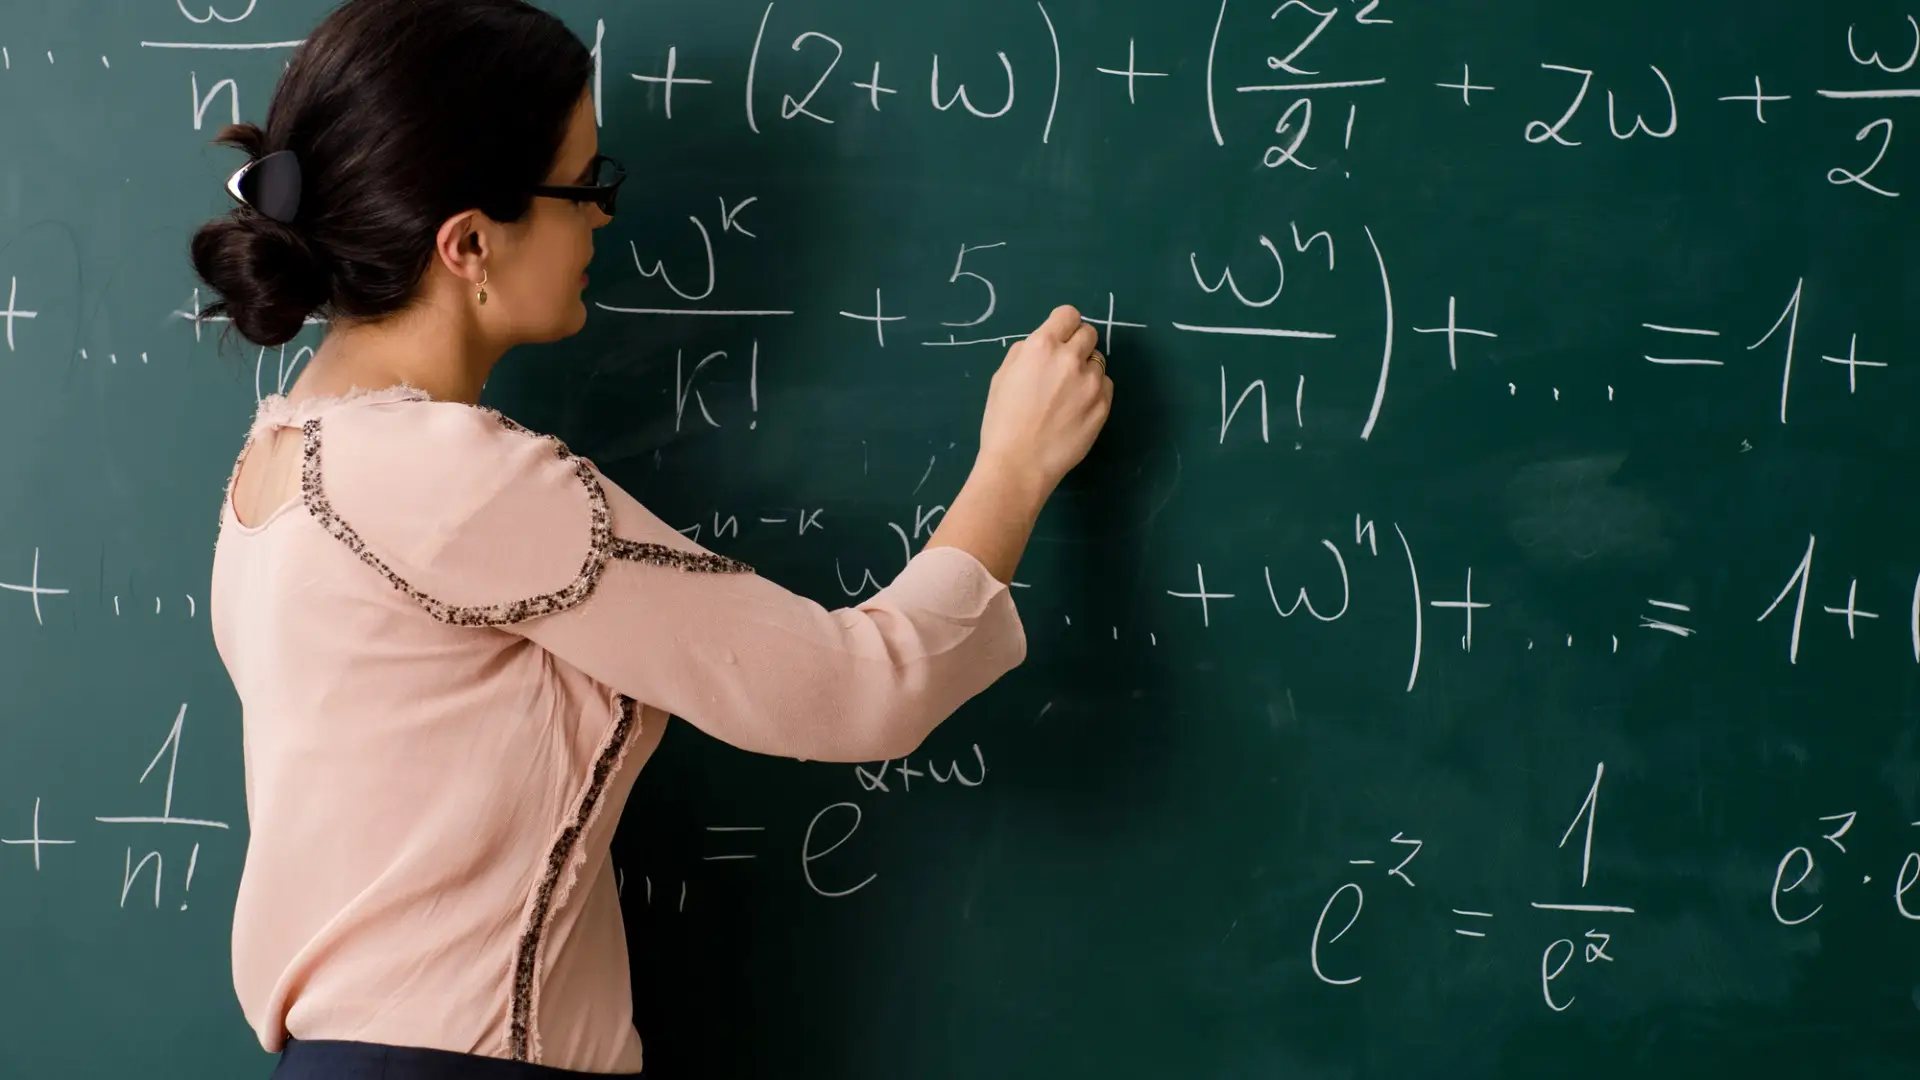 ... w/n 1 + (2 + w) + (z²/2! + zw + w/2
+ ... + w^k/k! + 5 + w^n/n!) + ... = 1 +
+ ... ^n-k w^k ... + w^n) + ... = 1 + (
+ 1/n! ... = e^z+w e^-z = 1/e^z e^z · e